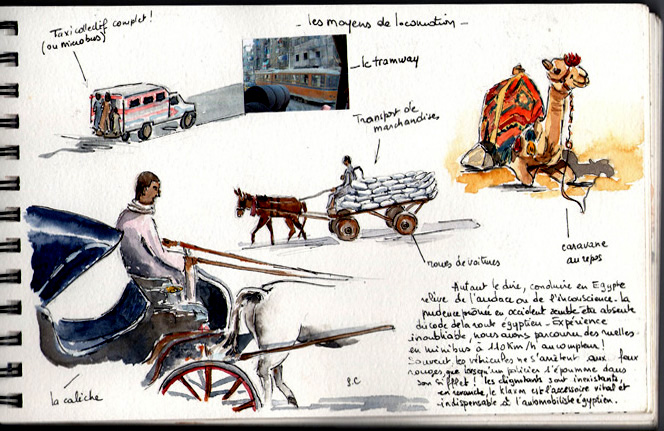 - les moyens de locomotion -
Taxi collectif complet !
(ou microbus)
le tramway
Transport de
marchandises
roues de voitures
caravane
au repos
la calèche
S.C
Autant le dire, conduire en Egypte
relève de l'audace ou de l'inconscience. La
prudence prônée en occident semble être absente
du code de la route égyptien - Expérience
inoubliable, nous avons parcouru des ruelles
en minibus à 110 Km/h au compteur !
Souvent, les véhicules ne s'arrêtent aux feux
rouges, que lorsqu'un policier s'époumone dans
son sifflet ! les clignotants sont inexistants,
en revanche, le klaxon est l'accessoire vital et
indispensable à l'automobiliste égyptien.